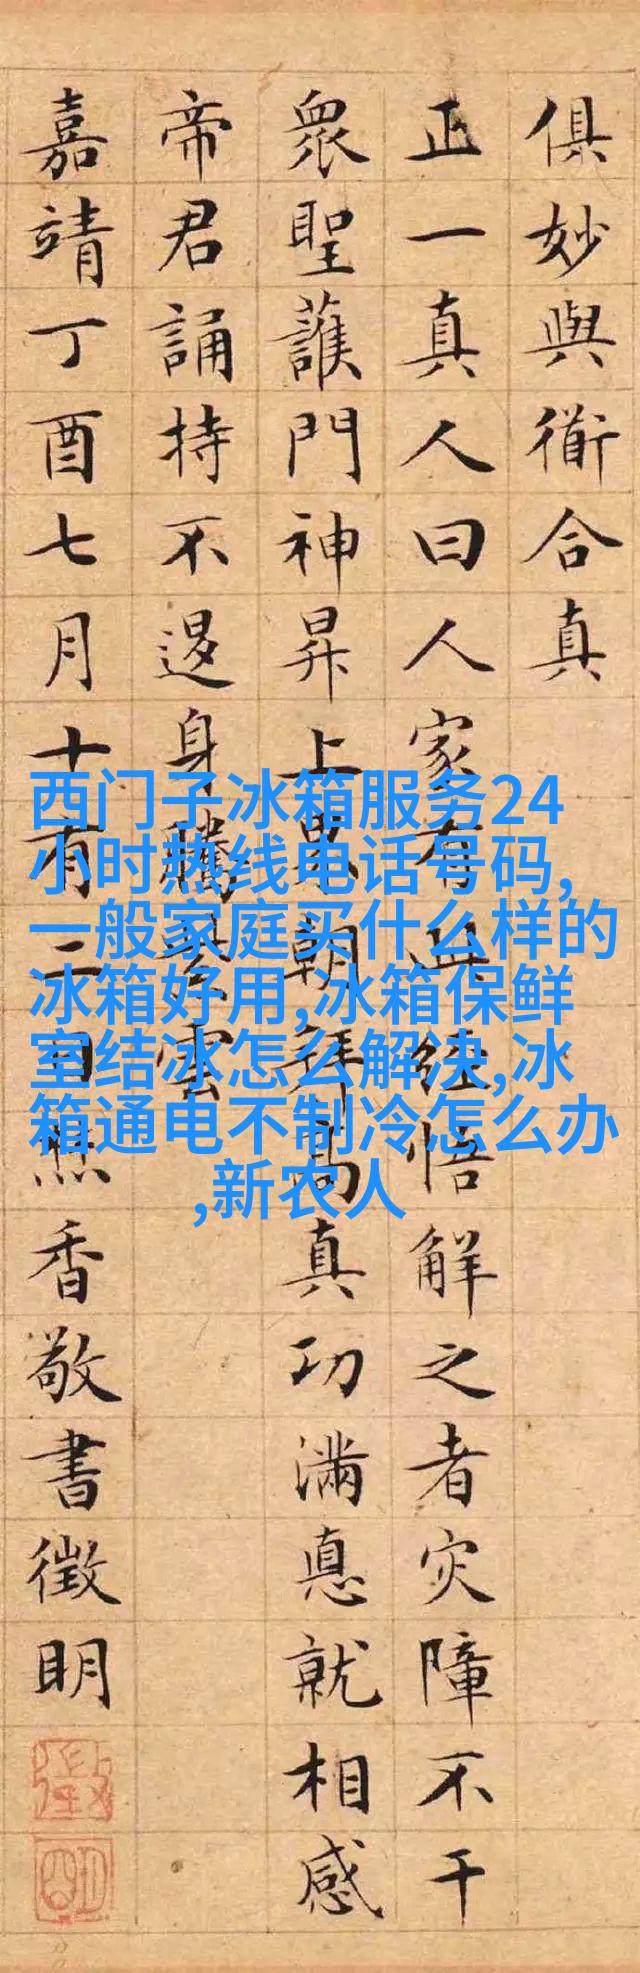 俱妙與衜合真
正一真人曰人家有此経悟解之者灾障不干
衆聖護門神昇上界朝拜高真功滿悳就相感
帝君誦持不退身騰景雲
嘉靖丁酉七月十有二日焦香敬書徵明
徵明
西门子冰箱服务24
小时热线电话号码,
一般家庭买什么样的
冰箱好用,冰箱保鲜
室结冰怎么解决,冰
箱通电不制冷怎么办
,新农人